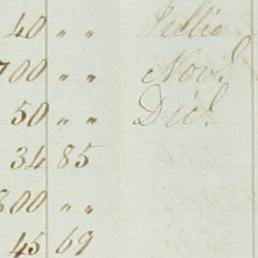 40 " " Julho
700 " " Nov.
50 " " Dic.
34 85
800 " "
45 69